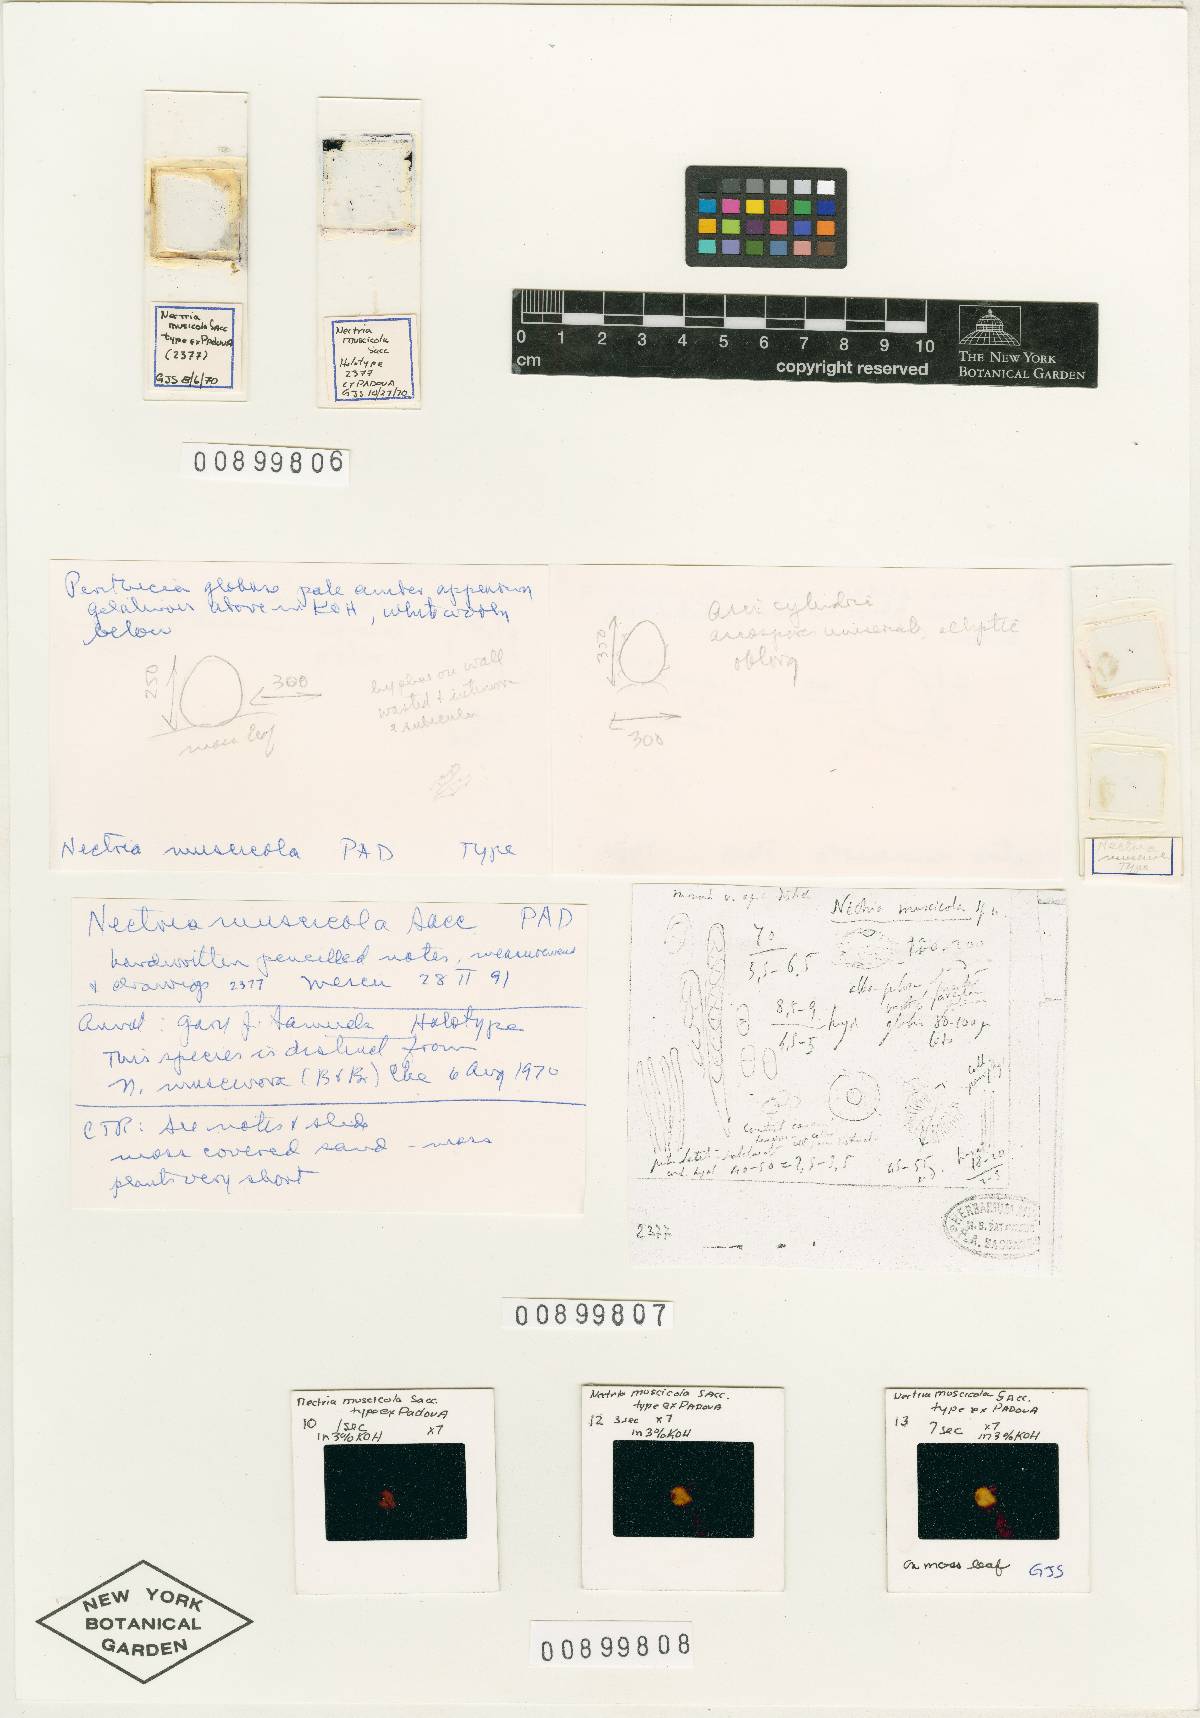 Nectria
muscicola Sacc
type ex PADOVA
(2377)
GJS 8/6/70
Nectria
muscicola
Sacc
Holotype
2377
ex PADOVA
GJS 10/27/70
0 1 2 3 4 5 6 7 8 9 10
cm
copyright reserved
THE NEW YORK
BOTANICAL GARDEN
00899806
Perithecia globose pale amber, appearing
gelatinous above in KOH, white woolly
below
250
300
moss leaf
hyphae on wall
Nectria muscicola PAD Type
350
300
Asci cylindric
ascospores uniseriate, elliptic
oblong
Nectria
muscicola
Type
Nectria muscicola Sacc PAD
handwritten pencilled notes, measurements
& drawings 2377 28 II 91
Annot: Gary J. Samuels Holotype
This species is distinct from
N. muscivora (B & Br) 6 Aug 1970
CTR: See notes & slide
moss covered sand - moss
plants very short
Nectria muscicola
70
5,5-6,5
180-200
8,5-9
4,5-5
globis 80-100
40-50 = 2,5-3,5
45-55
18-20
2377
00899807
Nectria muscicola Sacc.
type ex PADOVA
10 1 sec x7
in 3% KOH
Nectria muscicola SACC.
type ex PADOVA
12 3 sec x7
in 3% KOH
Nectria muscicola SACC.
type ex PADOVA
13 7 sec x7
in 3% KOH
on moss leaf GJS
NEW YORK
BOTANICAL
GARDEN
00899808